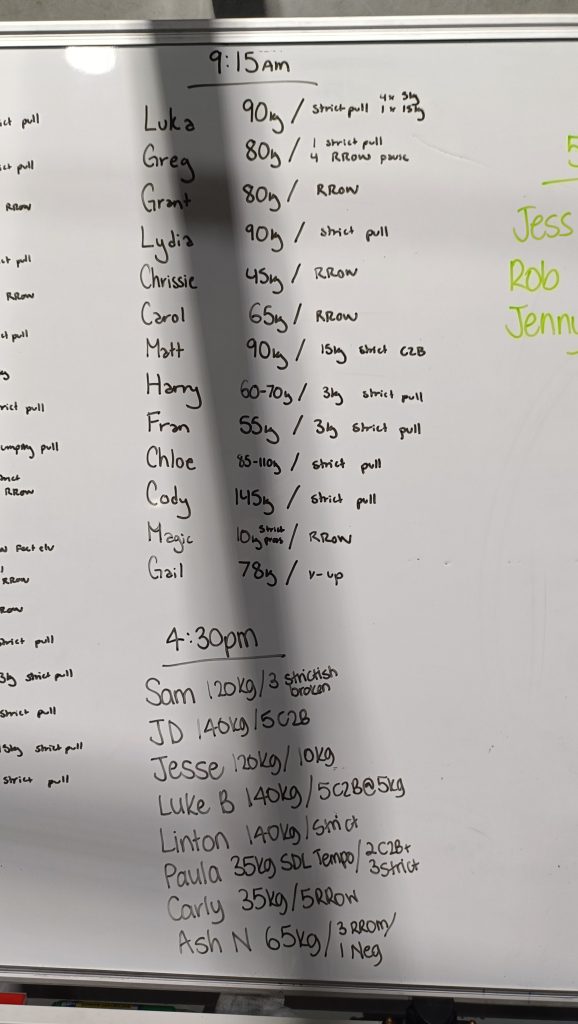 9:15am
Luka 90kg / strict pull 4x 5kg 1x 15kg
Greg 80kg / 1 strict pull
4 RRow pause
Grant 80kg / RRow
Lydia 90kg / strict pull
Chrissie 45kg / RRow
Carol 65kg / RRow
Matt 90kg / 15kg strict C2B
Harry 60-70kg / 3kg strict pull
Fran 55kg / 3kg strict pull
Chloe 85-110kg / strict pull
Cody 145kg / strict pull
Magic 10kg strict press / RRow
Gail 78kg / v-up
4:30pm
Sam 120kg/3 strictish
broken
JD 140kg/5C2B
Jesse 120kg/10kg
Luke B 140kg/5C2B@5kg
Linton 140kg/Strict
Paula 35kg SDL Tempo/2C2B+
3Strict
Carly 35kg/5RRow
Ash N 65kg/3 RROM/
1 Neg
ict pull
ict pull
RRow
ct pull
RRow
ct pull
rict pull
umping pull
RRow
RRow
Row
strict pull
3kg strict pull
strict pull
15kg strict pull
strict pull
5
Jess
Rob
Jenny